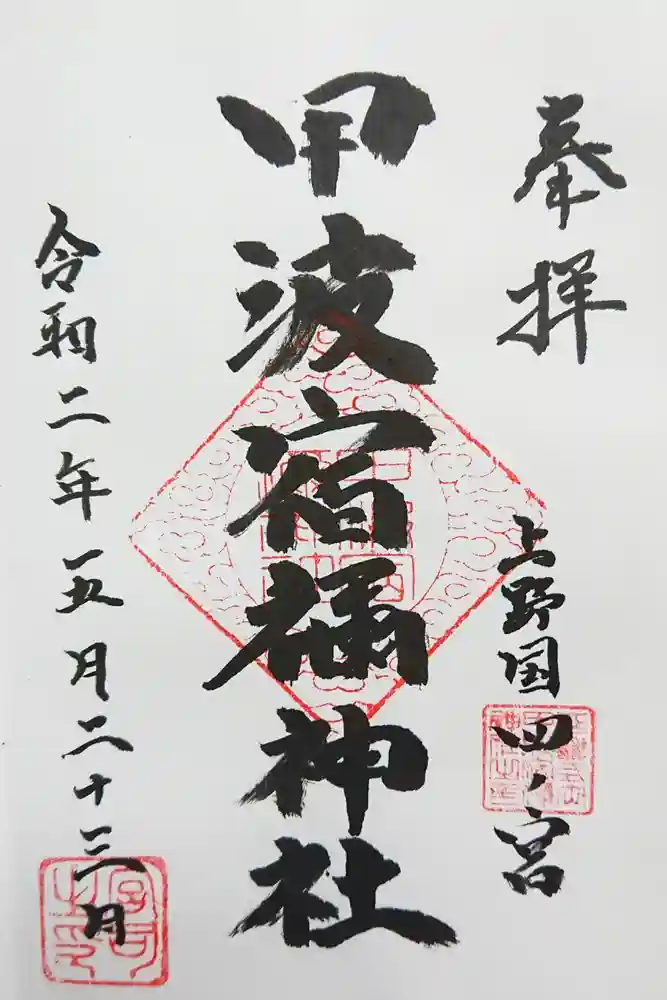 奉拝
上野国四ノ宮
甲波宿禰神社
令和二年五月二十三日